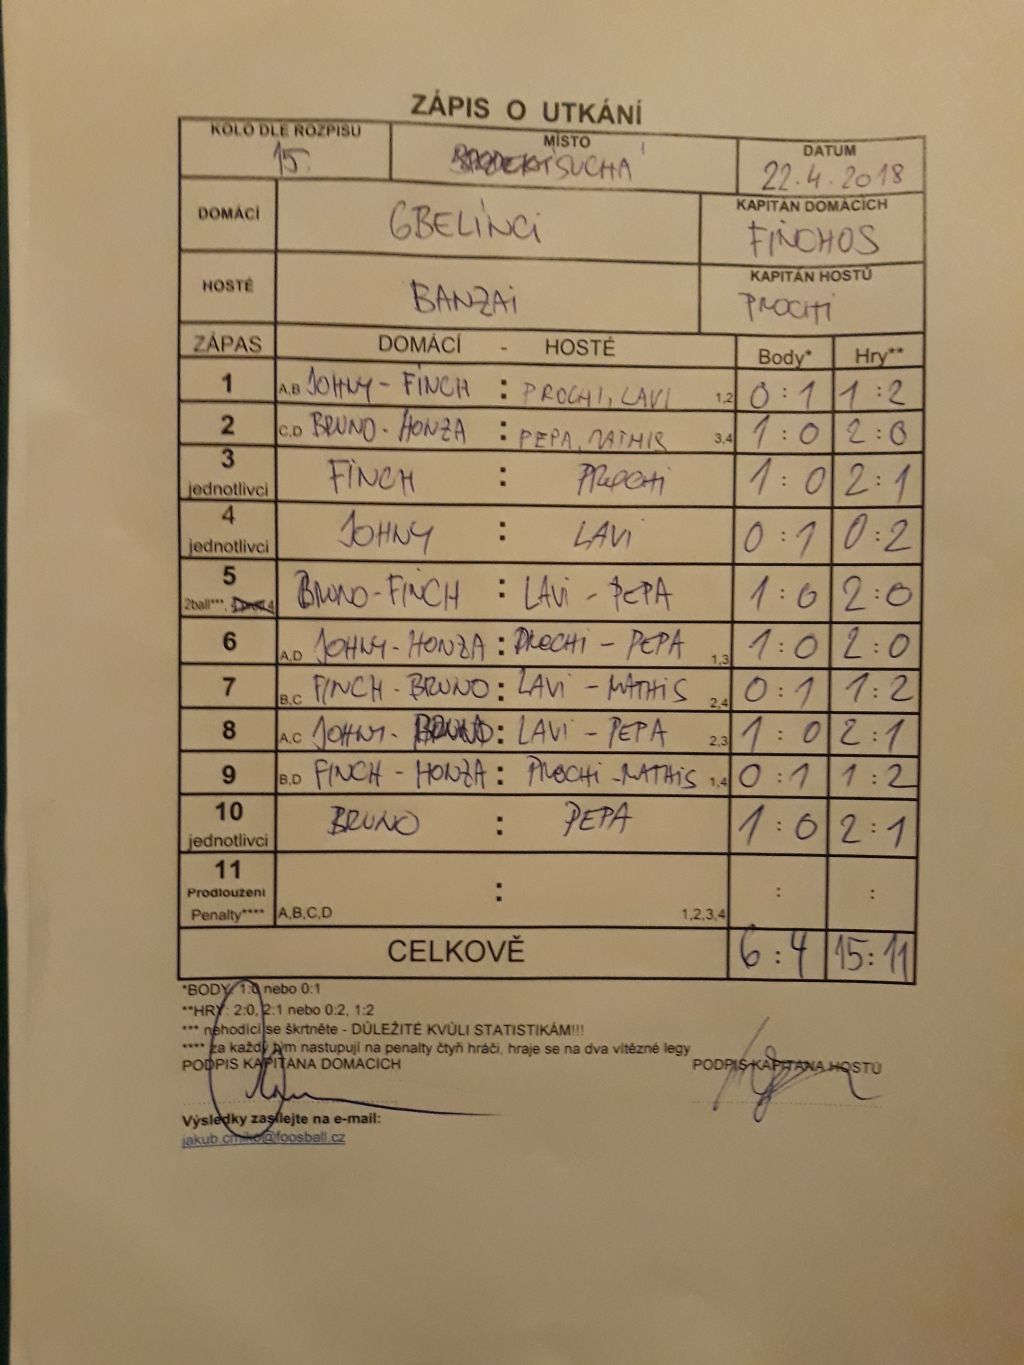 ZÁPIS O UTKÁNÍ
KOLO DLE ROZPISU MÍSTO DATUM
15. SUCHÁ 22.4.2018
DOMÁCÍ GBELÍNCI KAPITÁN DOMÁCÍCH
FINCHOS
HOSTÉ BANZAI KAPITÁN HOSTŮ
PROCHI
ZÁPAS DOMÁCÍ - HOSTÉ Body* Hry**
1 A,B JOHNY - FINCH : PROCHI, LAVI 1,2 0:1 1:2
2 C,D BRUNO - HONZA : PEPA, MATHIS 3,4 1:0 2:0
3 jednotlivci FINCH : PROCHI 1:0 2:1
4 jednotlivci JOHNY : LAVI 0:1 0:2
5 2ball***, BRUNO-FINCH : LAVI - PEPA 1:0 2:0
6 A,D JOHNY-HONZA : PROCHI - PEPA 1,3 1:0 2:0
7 B,C FINCH - BRUNO : LAVI - MATHIS 2,4 0:1 1:2
8 A,C JOHNY - BRUNO : LAVI - PEPA 2,3 1:0 2:1
9 B,D FINCH - HONZA : PROCHI - MATHIS 1,4 0:1 1:2
10 jednotlivci BRUNO : PEPA 1:0 2:1
11 Prodloužení : : :
Penalty**** A,B,C,D 1,2,3,4
CELKOVĚ 6:4 15:11
*BODY: 1:0 nebo 0:1
**HRY: 2:0, 2:1 nebo 0:2, 1:2
*** nehodící se škrtněte - DŮLEŽITÉ KVŮLI STATISTIKÁM!!!
**** za každý tým nastupují na penalty čtyři hráči, hraje se na dva vítězné legy
PODPIS KAPITÁNA DOMÁCÍCH PODPIS KAPITÁNA HOSTŮ
Výsledky zasílejte na e-mail:
jakub.cmiko@foosball.cz